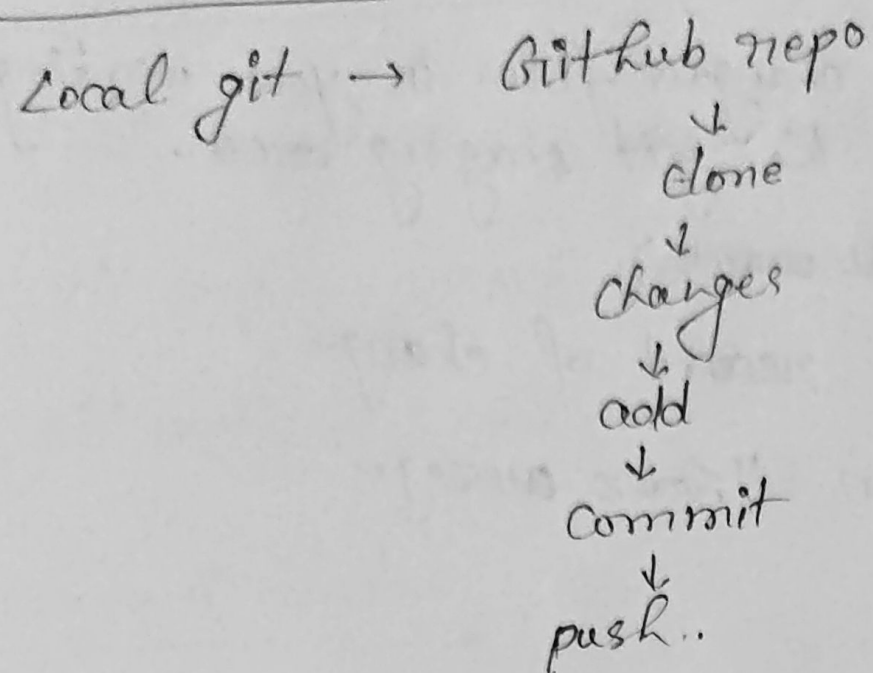 Local git → Github repo
↓
clone
↓
changes
↓
add
↓
commit
↓
push..